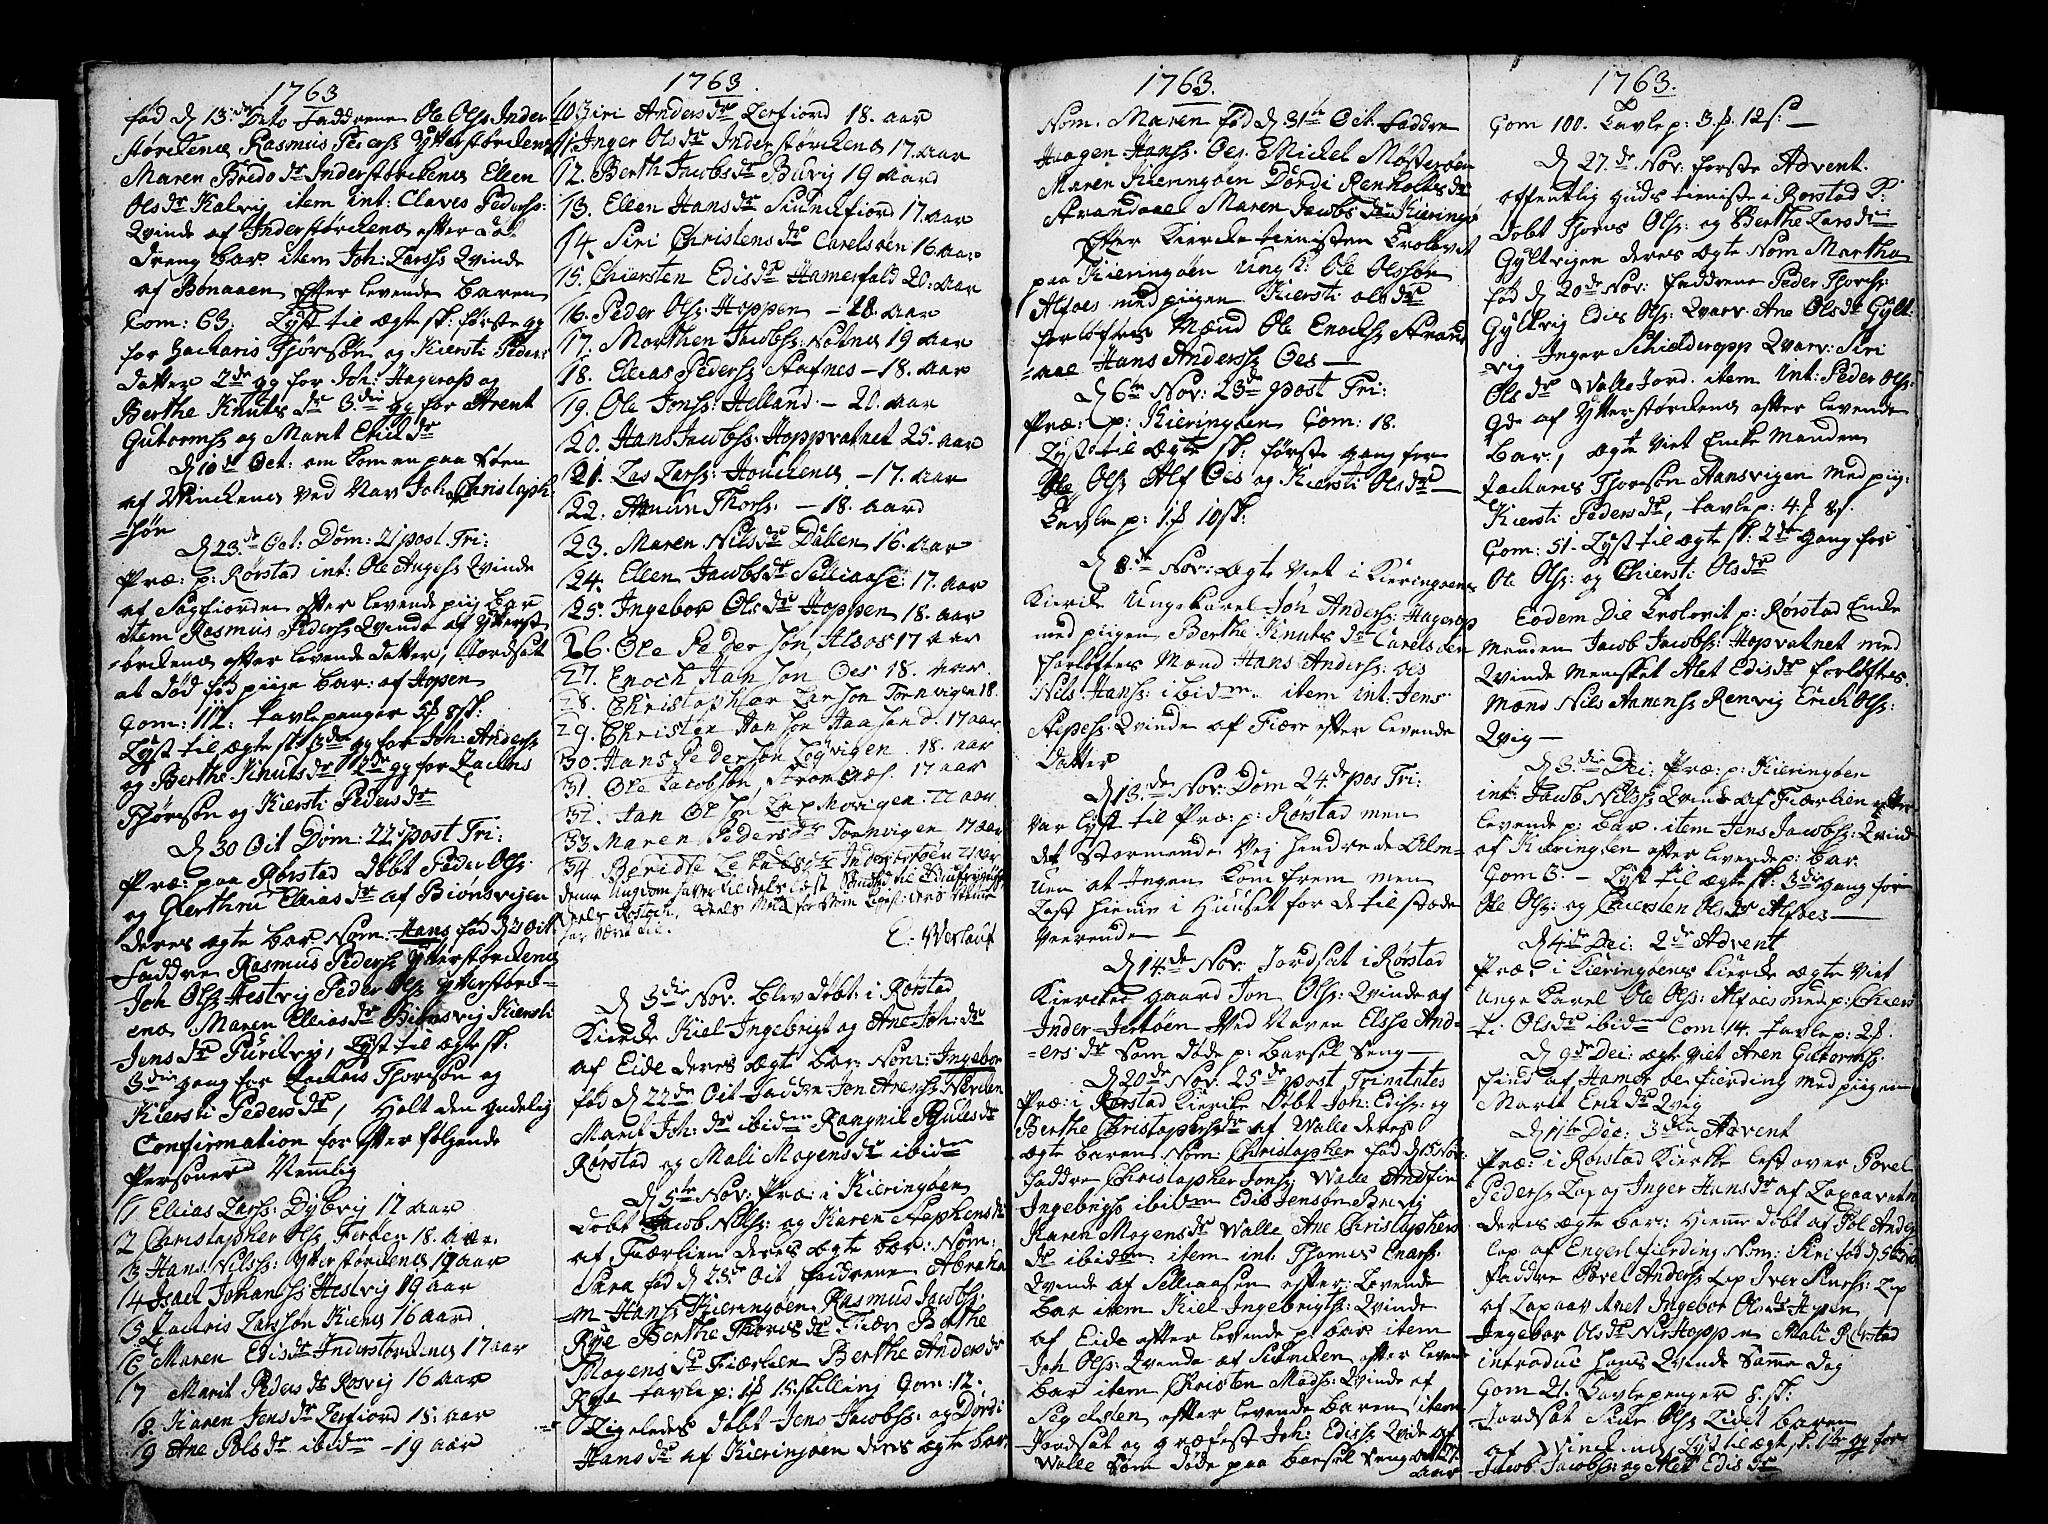 1763
fød d 13de Dito Faddrene Ole Olss Inder
størckena Rasmus Peders Ytterstørckena
Maren Bredo dr Inderstørckena Ellen
Ols dr Kalvig item int: Claves Peders:
Qvinde af Inderstørckena efter
Dreng bar item Joh: Larss Qvinde
af Bonaaen Efter levende baren
Com: 63. Lyst til ægte sk: første gg
for Zacharis Thørisøn og Kiersti Peders
datter 2de gg for Joh: Hagerop og
Berthe Knuts dr 3die gg for Arent
Gutormss og Marit Erics dr
d 10de Oct: om komen paa Søen
af Winckena ved Nav Joh Christoph
=søn
d 23de Oct: Dom: 21 post Tri:
Præ: p: Rørstad int: Ole Angess Qvinde
af Sagfiorden efter levende pige bar
item Rasmus Peders Qvinde af Ytterst
=ørckena efter levende datter, Jordsat
at død fød piige bar: af Hopen
Com: 112: tavlepenger 5 f 8 sk:
Lyst til ægte sk 3die gg for Joh: Anders
og Berthe Knuts dr 2de gg for Zacharis
Thørisøn og Kiersti Peders dr
d 30 Oct Dom: 22 post Tri:
Præ: paa Rørstad døbt Peder Ols:
og Gerthru Ellias dr af Bionsvigen
deres ægte bar Nom: Hans fød d 21 Oct.
Faddre Rasmus Peders Ytterstørckena
Joh Olss Hestvig Peder Olss Ytterstørck-
ena Maren Ellias dr Bionsvig Kiersti
Jens dr Purkvig, Lyst til ægte sk:
3die gang for Zacharis Thorisøn og
Kiersti Peders dr, Holt den gudelig
Confirmation for efter følgende
Personer Nemlig
1 Ellias Larss: Dybvig 17 aar
2 Christopher Olss Ferøen 18. aar.
3 Hans Nilss: Ytterstørckena 19 aar
4 Isach Johanss Hestvig 19 aar
5 Zachris Larssøn Kiena 16 aard.
6 Maren Edis dr Inderstørckena 17 aar
7 Marit Peders dr Rosvig 16 aar
8. Karen Jens dr Lerfiord 15: aar
9 Ane Pols dr ibidem - 19 aar
1763
10 Siri Anders dr Lerfiord 18. aar
11. Inger Ols dr Inderstørckena 17. aar
12. Berth Jacobs dr Buvig 19 aard
13. Ellen Hans dr Siunckfiord 17. aar
14. Siri Christens dr Carelsøen 16. aar
15. Chiersten Edis dr Hamerfald 20: aar
16. Peder Olss: Hoppen - 18. aar
17. Morthen Jacobss: Nøtnes 19 aar
18. Ellias Pederss Stafnes - 18. aar
19. Ole Jonss: Helland - 20. aar
20. Hans Jacobss: Hoppvatnet 25. aar
21. Las Larss: Houckena - 17. aar
22. Amun Thorss. - 18. aard
23. Maren Nils dr Dallen 16. aar
24. Ellen Jacobs dr Selliaase: 17. aar
25. Ingebor Ols dr Hoppen 18. aar
26. Ole Pedersøn Alsos 17 aar
27. Enoch Hansøn Oes 18. aar
28. Christopher Larsøn Tørnvigen 18.
29. Christen Jansøn Haasand. 17 aar
30. Hans Pedersøn Løgvigen. 18. aar
31. Ole Jacobsøn, Strømsnæs. 17 aar
32. Jan Olsøn Lap Movigen. 22 aar
33. Maren Peders dr Tornvigen 17 aar
34. Beridte Inderjertøen 21 aar
denne Ungdom haver
har været til.
E. Werlauf
d 3die Nov. Blev døbt i Rørstad
Kiercke Kiel Ingebrigt og Ane Joh: dr
af Eide deres ægte bar: Nom: Ingebor
fød d 22de Oct Faddre Jon Arenss: Nørden
Marit Joh: dr ibidem Rangnil Skules dr
Rørstad og Mali Mogens dr ibidm
d 5te Nov: Præ: i Kieringøen
døbt Jacob Nilss: og Karen Stephens dr
af Fiærlien deres ægte bar: Nom:
Sara fød d 25de Oct faddrene Abraha
=m Hanss Kieringøen, Rasmus Jacobss:
Røe Berthe Thoris dr Fiær Berthe
Mogens dr Fiærlien Berthe Anders dr
Røe tavle p: 1 f 15 skilling Com: 12.
Ligeledes døbt Jens Jacobss: og Dordi
Hans dr af Kieringøen deres ægte bar.
1763.
Nom. Maren fød d 31te Oct. faddre
Haagen Hanss. Oes, Mickel Møsterøen
Maren Kieringøen Dordi Renholts dr
Strandaae Maren Jacobs dr Kieringø
Efter Kiercke tienisten Trolovet
paa Kieringøen Ungk: Ole Olssøn
Alfoes med piigen Kiersti Ols dr
forløftes Mænd Ole Enochs Strand
=aae Hans Anderss Oes -
d 6te Nov: 23de post Tri:
Præ: p: Kieringøen Com: 18.
Lyst til ægte sk: første gang for
Ole Olss Alf Oes og Kiersti Ols dr -
Tavle p: 1 f 10 sk:
d 8de Nov: ægte viet i Kieringøens
Kiercke Ungekarel Joh Anderss: Hagerop
med piigen Berthe Knuts dr Carelsøen
Forløftes Mænd Hans Anderss: oes
Nils Hanss: ibidm. item int. Jens
Stepess: Qvinde af Fiære efter levende
Datter
d 13de Nov: Dom 24de pos Tri:
var lyst til Præ: p: Rørstad men
det stormende Vej hindrede Alm-
uen at Ingen kom frem men
last hieme i Huuset for de til stæde
veerende
d 14de Nov: Jordsat i Rørstad
Kierckes gaard Jon Olss: Qvinde af
Inder-Jertøen Ved Naven Elsse And-
=ers: dr Som døde p: barsel seng -
d 20de Nov: 25de post Trinitates
Præ: i Rørstad Kiercke Døbt Joh: Ediss: og
Berthe Christophers dr af Walle deres
ægte baren Nom: Christopher fød d 15 Nov:
Faddre Christopher Jonss: Walle Andfin
Ingebrigs ibidem Edis Jensøn Buvig
Karen Mogens dr Walle Ane Christophers
dr ibidem. item int. Thomes Enarss:
Qvinde af Selliaasen efter: levende
bar item Kiel Ingebrigtss: Qvinde
af Eide efter levende p: bar item
Joh Olss: Qvinde af Stercken efter levend
bar item Christen Madss: Qvinde af
Segelsten efter levende baren item
Jordsat og græfest Joh: Ediss: Qvinde af
Walle Som døde paa barsel seng
aar
1763.
Com 100. Tavle p: 3. f. 12 s: -
d 27de Nov: første Advent.
offentlig guds tieniste i Rørstad K:
døbt Thores Olss: og Berthe Lars dr
Gyltvigen deres ægte Nom Martha
fød d 20de Nov: faddrene Peder Thorss:
Gyltvig Edis Olss: Qvarv: Ane Ols dr Gylt-
vig Inger Schielderopp Qvarv: Siri
Ols dr Walle Jord. item Int: Peder Olss:
Qde af Ytterstørckena efter levende
Bar, ægte viet Encke Manden
Zacharis Thorisøn Aansvigen med piig:
Kiersti Peders dr, tavle p: 4. f 8 s.
Com: 51 - Lyst til ægte sk: 2de gang for
Ole Olss: og Chiersti Ols dr
Eodem Die Trolovit p: Rørstad Encke
manden Jacob Jacobss: Hopvatnet med
Qvinde mensket Alet Edis dr forløftes
Mænd Nils Arnenss Renvig Erich Olss:
Qvig -
d 3die Dec: Præ: p: Kieringøen
int: Jacob Nilss: Qvinde af Fiærlien efter
levende p: bar. item Jens Jacobss: Qvinde
af Kieringøen efter levende p: bar.
Com 3. - Lyst til ægte sk: 3die gang for
Ole Olss: og Chiersten Ols dr Alfoes -
d 4de Dec: 2de Advent
Præ: i Kieringøens Kiercke ægte viet
Unge karel Ole Olss: Alfoes med p: Chiers
ti Ols dr ibidm Com: 14. tavle p: 2 f.
d 9de Dec: ægte viet Aren Gutormss:
Find af Hamer øe fierding med piigen
Marit Erick dr Qvig
d 11te Dec: 3die Advent
Præ: i Rørstad Kiercke lest over Povel
Peders Lap og Inger Hans dr af Lapaavatn
deres ægte bar: hieme døbt af Pol Anders
lap af Engerl fierding. Nom: Kiri fød d 5te
Faddre Povel Anderss Lap Iver Siurss: Lap
af Lapaav Anet Ingebor Ols dr Hopen
Ingebor Ols dr Nir Hoppe Mali Rørstad
introduc hans Qvinde Samme dag
Com 21. Tavlepenger 8. sk:
Jordsat Siur Olss: Lidet baren
af Winckenes, Lyst til ægt. sk. 1te gg for
Jacob Jacobss: og Alet Edis dr